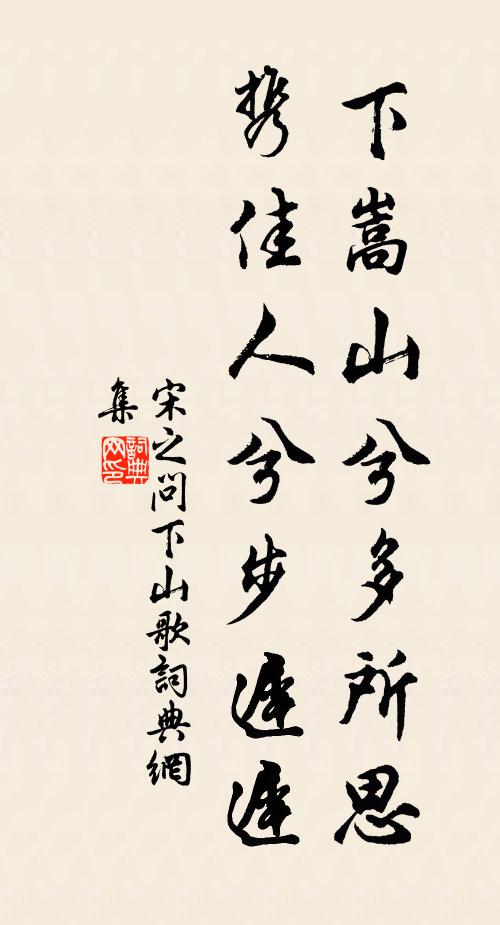 下嵩山兮多所思
携佳人兮步遲遲
宋之問下山歌詞典網
集
詞典網印